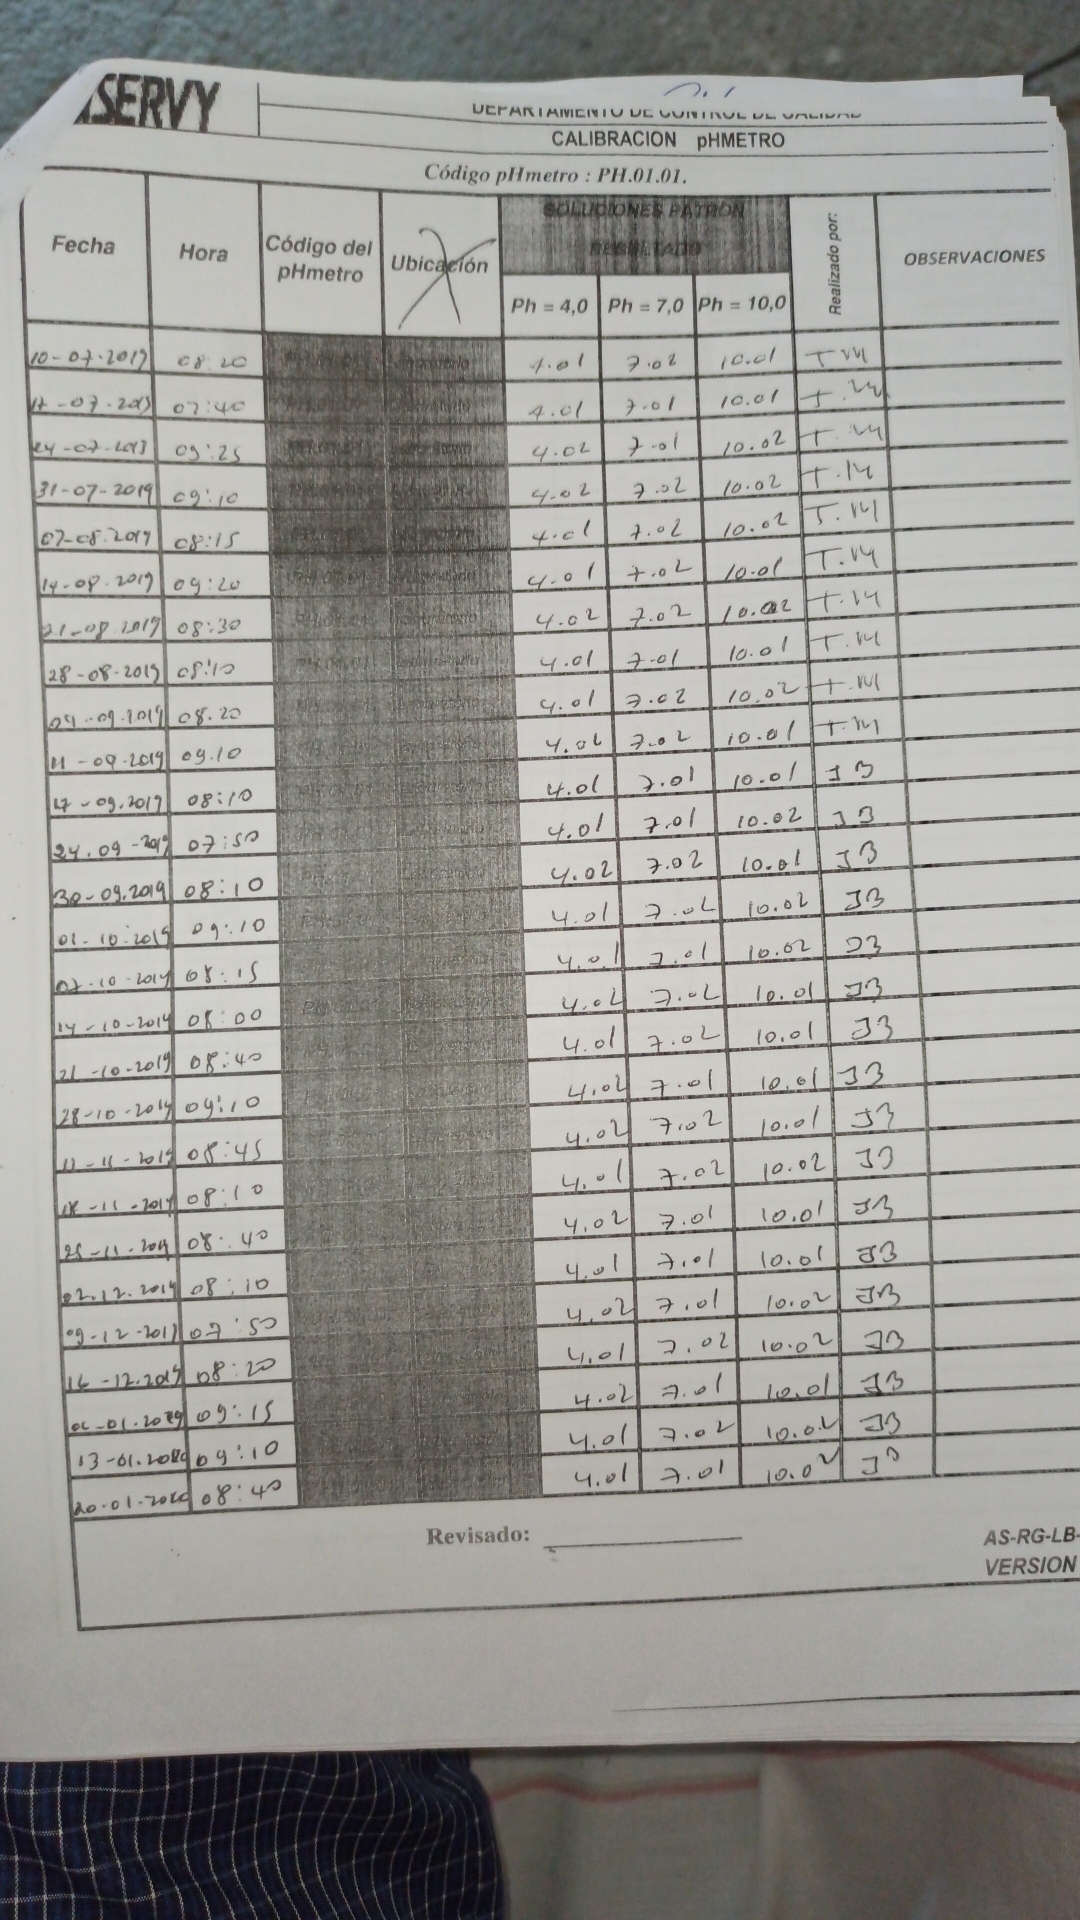 ASERVY
DEPARTAMENTO DE CONTROL DE CALIDAD
CALIBRACION pHMETRO
Código pHmetro : PH.01.01.
Fecha Hora Código del pHmetro Ubicación SOLUCIONES PATRON RESULTADO Realizado por: OBSERVACIONES
Ph = 4,0 Ph = 7,0 Ph = 10,0
10-07-2019 08:20 4.01 7.02 10.01 T.M
17-07-2019 07:40 4.01 7.01 10.01 T.M
24-07-2019 09:25 4.02 7.01 10.02 T.M
31-07-2019 09:10 4.02 7.02 10.02 T.M
07-08.2019 08:15 4.01 7.02 10.02 T.M
14-08.2019 09:20 4.01 7.02 10.01 T.M
21-08.2019 08:30 4.02 7.02 10.02 T.M
28-08-2019 08:10 4.01 7.01 10.01 T.M
04-09.2019 08.20 4.01 7.02 10.02 T.M
11-09.2019 09.10 4.02 7.02 10.01 T.M
17-09.2019 08:10 4.01 7.01 10.01 JB
24.09-2019 07:50 4.01 7.01 10.02 JB
30-09.2019 08:10 4.02 7.02 10.01 JB
01-10.2019 09:10 4.01 7.02 10.02 JB
07-10-2019 08:15 4.01 7.01 10.02 JB
14-10-2019 08:00 4.02 7.02 10.01 JB
21-10-2019 08:40 4.01 7.02 10.01 JB
28-10-2019 09:10 4.02 7.01 10.01 JB
11-11-2019 08:45 4.02 7.02 10.01 JB
18-11-2019 08:10 4.01 7.02 10.02 JB
25-11-2019 08:40 4.02 7.01 10.01 JB
02.12.2019 08:10 4.01 7.01 10.01 JB
09-12-2019 07:50 4.02 7.01 10.02 JB
16-12.2019 08:20 4.01 7.02 10.02 JB
06-01.2020 09:15 4.02 7.01 10.01 JB
13-01.2020 09:10 4.01 7.02 10.02 JB
20-01-2020 08:40 4.01 7.01 10.02 JB
Revisado:
AS-RG-LB-
VERSION